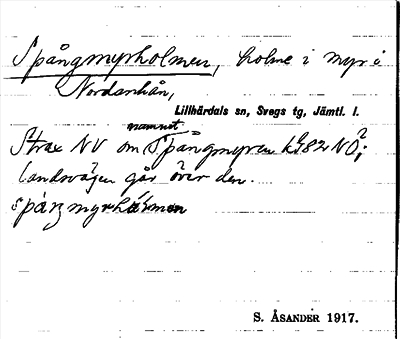 Spångmyrholmen, holme i myr i
Nordanhån,
Lillhärdals sn, Svegs tg, Jämtl. l.
namnet
Strax NV om Spångmyren k982 NÖ?;
landsvägen går över den.
spångmyrhåɫmen
S. ÅSANDER 1917.